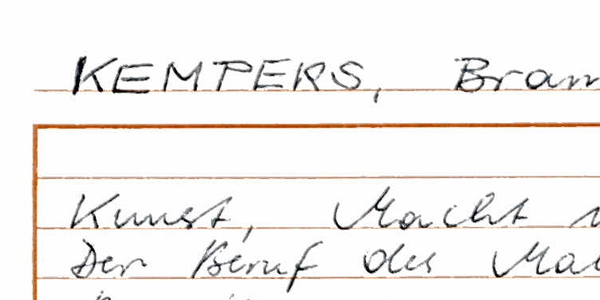 KEMPERS, Bram
Kunst, Macht
Der Beruf des Mal